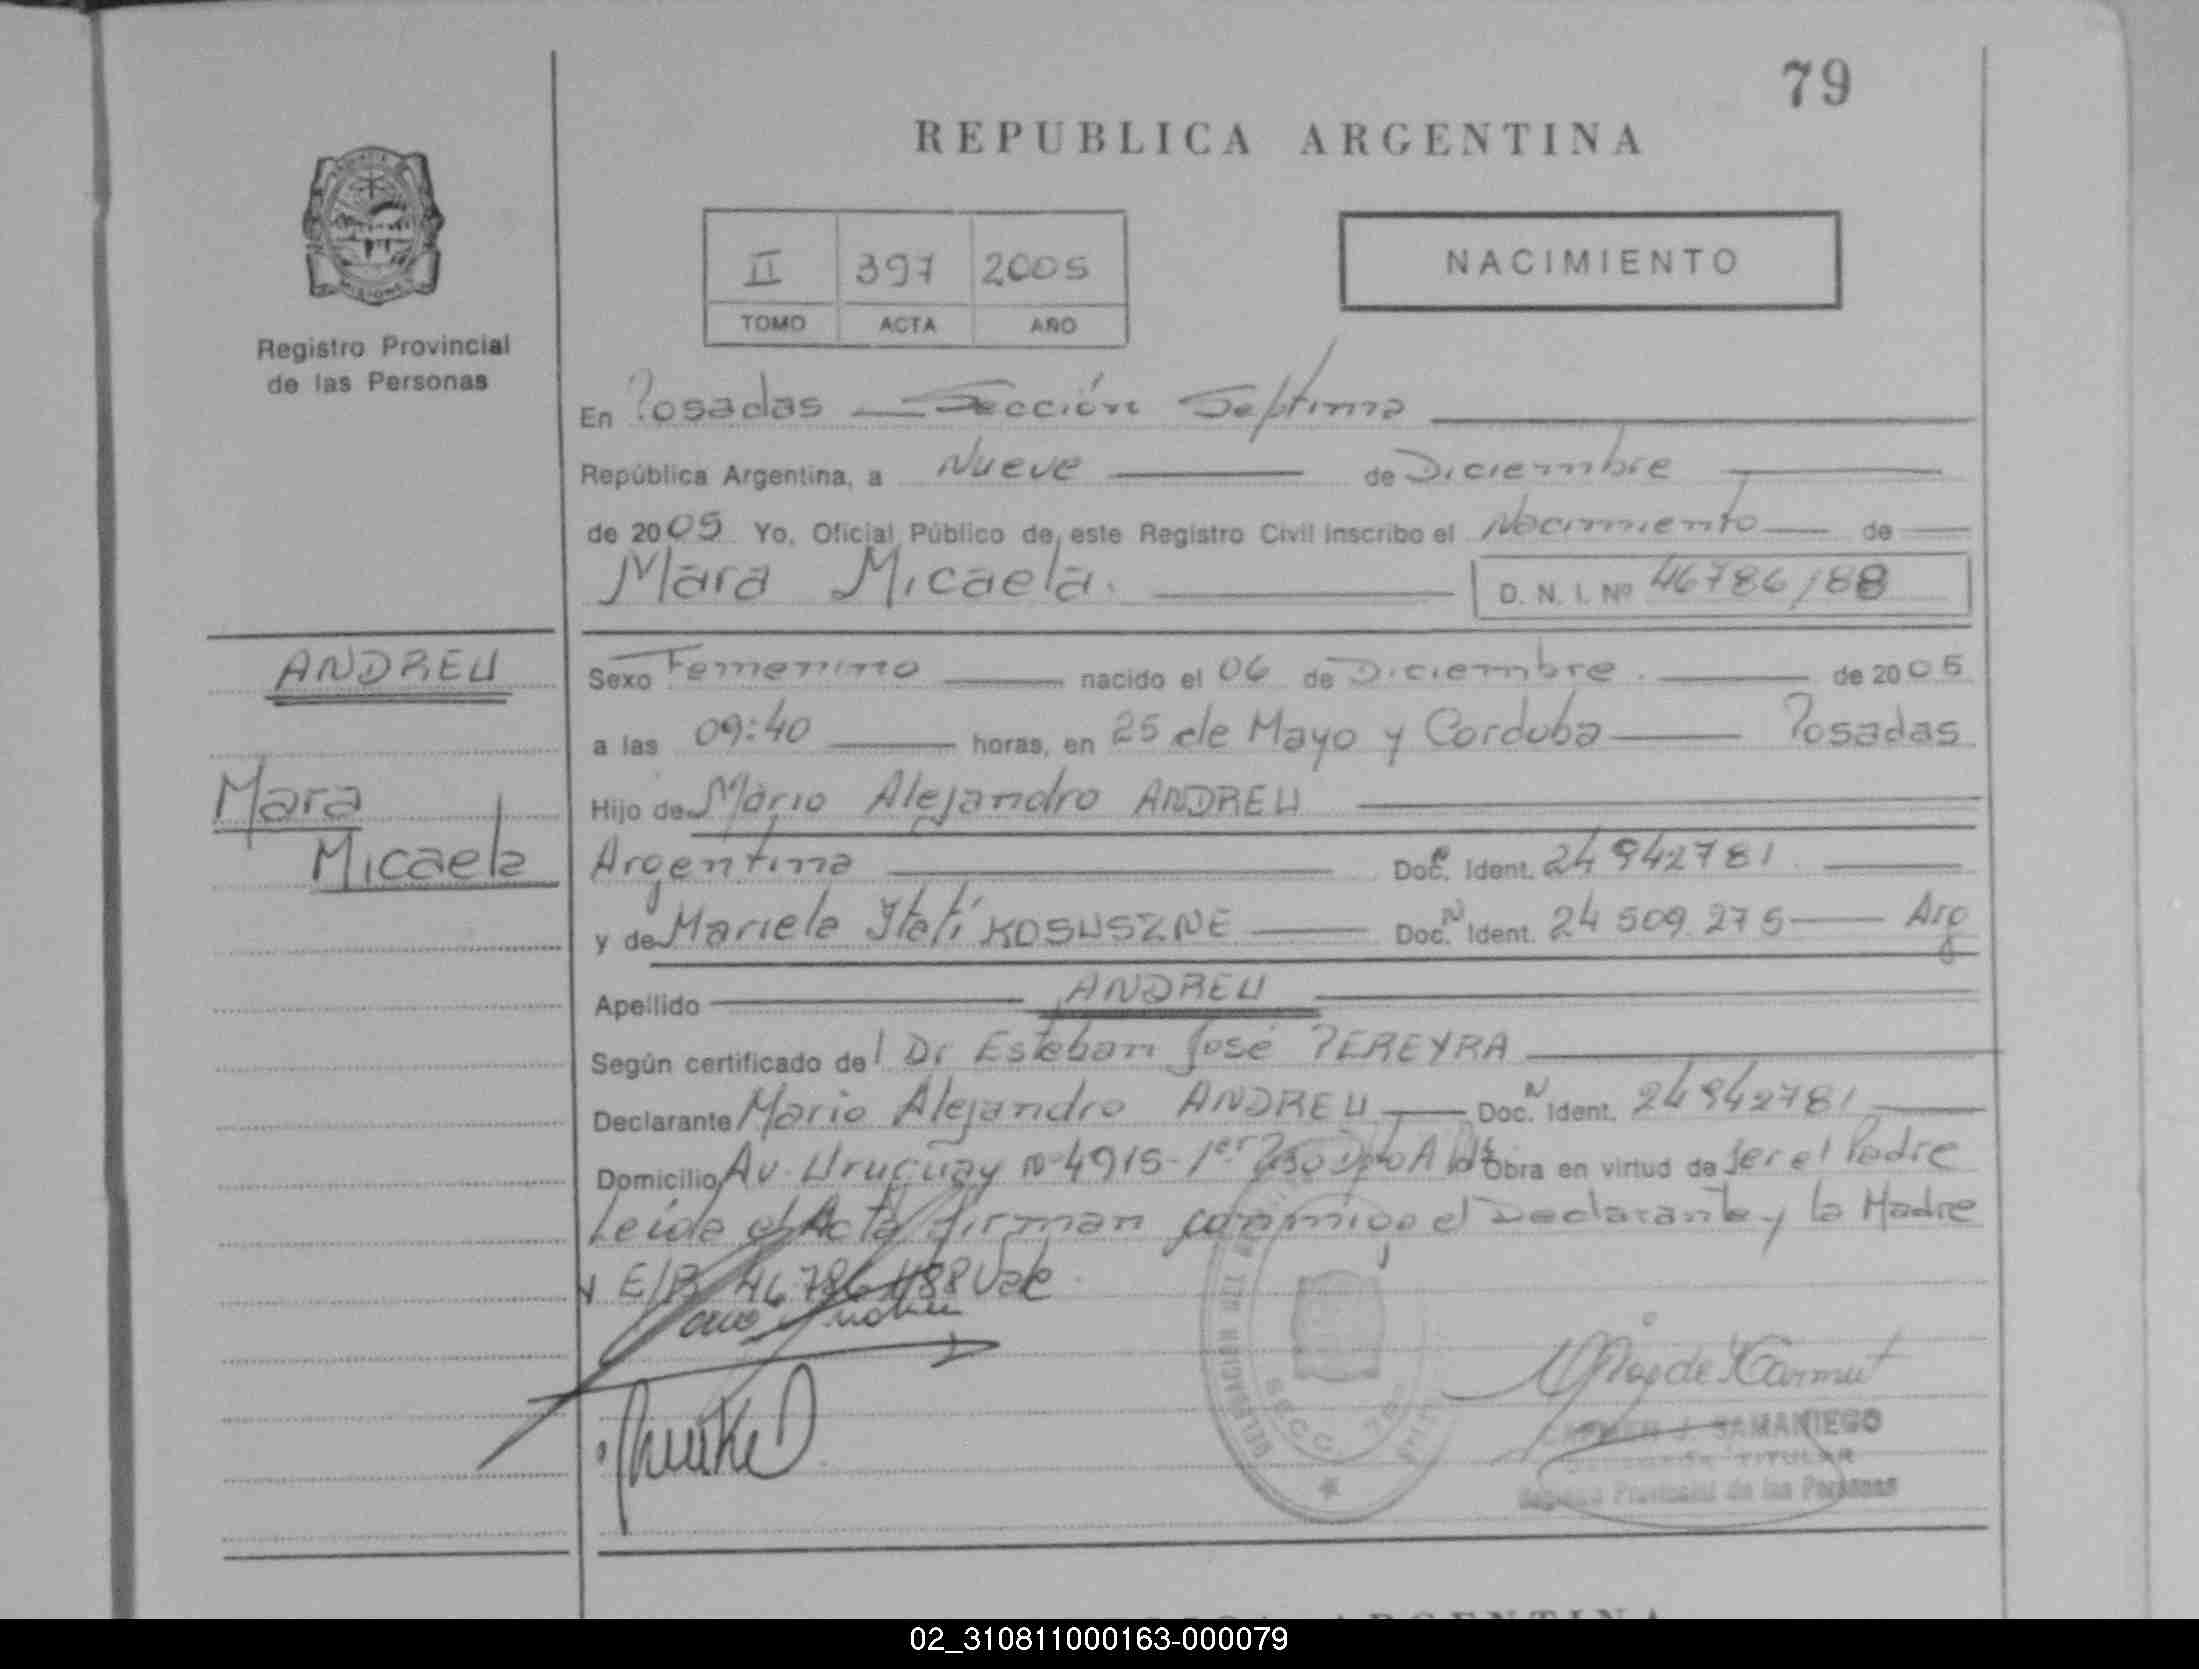 79
REPUBLICA ARGENTINA
II 397 2005
TOMO ACTA AÑO
NACIMIENTO
Registro Provincial
de las Personas
En Posadas — Sección Septima
República Argentina, a Nueve de Diciembre
de 2005 Yo, Oficial Público de este Registro Civil inscribo el Nacimiento de
Mara Micaela.
D. N. I. Nº 46786188
ANDREU
Mara
Micaela
Sexo Femenino nacido el 06 de Diciembre. de 2005
a las 09:40 horas, en 25 de Mayo y Cordoba — Posadas
Hijo de Mario Alejandro ANDREU
Argentina Doc. Ident. 24942781
y de Mariela Itatí KOSUSZNE Doc. Ident. 24 509 275 — Arg
Apellido ANDREU
Según certificado del Dr Esteban José PEREYRA
Declarante Mario Alejandro ANDREU Doc. Ident. 24942781
Domicilio Av. Uruguay Nº 4915 - 1er Piso Dpto A Obra en virtud de ser el Padre
Leida el Acta firman conmigo el Declarante y la Madre
E/R 46786188 Vale
SECC. 7a
CARMEN J. SAMANIEGO
TITULAR
Registro Provincial de las Personas
ARGENTINA
02_310811000163-000079